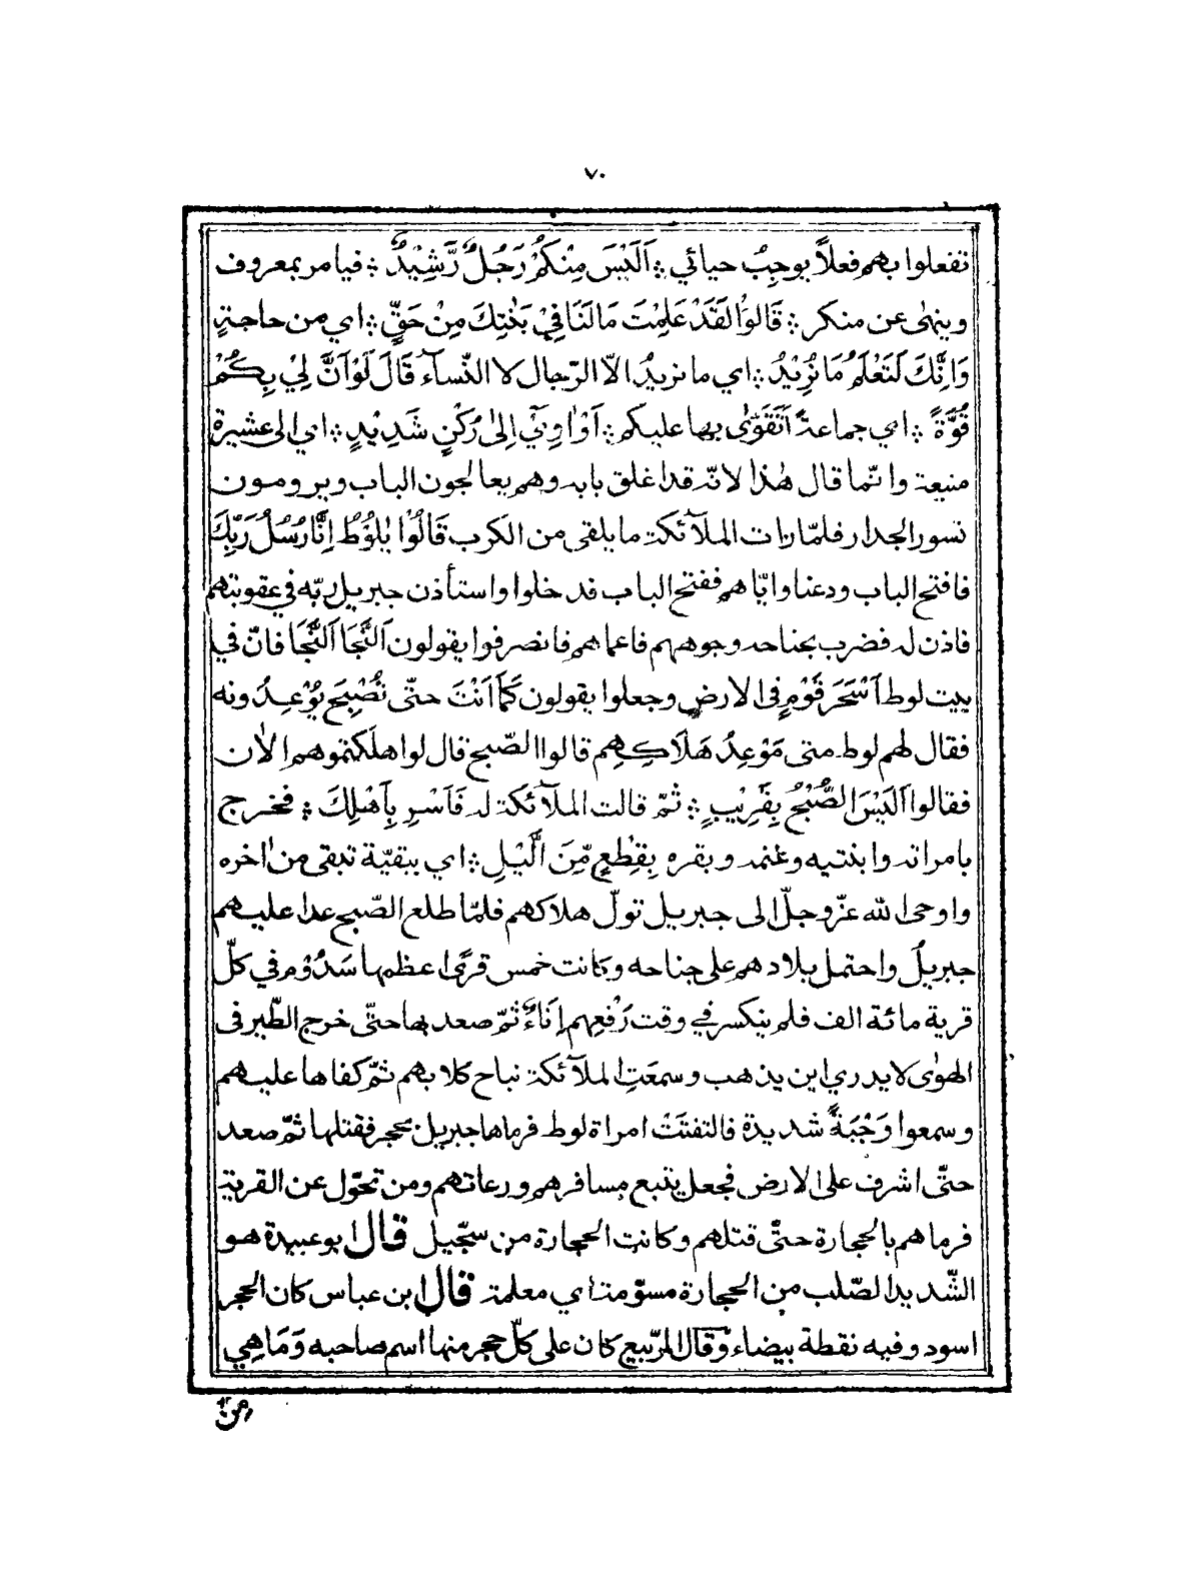 ٧٠
تفعلوا بهم فعلاً يوجبُ حيائي ۞ اَلَيْسَ مِنْكُمْ رَجُلٌ رَّشِيْدٌ ۞ فيامر بمعروف
وينهٰى عن منكر ۞ قَالُوْا لَقَدْ عَلِمْتَ مَا لَنَا فِيْ بَنٰتِكَ مِنْ حَقٍّ ۞ اي من حاجةٍ
وَاِنَّكَ لَتَعْلَمُ مَا نُرِيْدُ ۞ اي ما نريدُ الاّ الرّجال لا النّسآء قَالَ لَوْ اَنَّ لِيْ بِكُمْ
قُوَّةً ۞ اي جماعةً اَتَقَوّٰى بها عليكم ۞ اَوْ اٰوِيْٓ اِلىٰ رُكْنٍ شَدِيْدٍ ۞ اي الى عشيرة
منيعة وانّما قال هٰذا لانّه قد اغلق بابه وهم يعالجون الباب ويرومون
تسور الجدار فلمّا رات الملآئكة ما يلقى من الكرب قَالُوْا يٰلُوْطُ اِنَّا رُسُلُ رَبِّكَ
فافتح الباب ودعنا وايّاهم ففتح الباب فدخلوا واستأذن جبريل ربّه في عقوبتهم
فاذن له فضرب بجناحه وجوههم فاعماهم فانصرفوا يقولون اَلنَّجَا اَلنَّجَا فانّ في
بيت لوط اَسْحَرَ قَوْمٍ فى الارض وجعلوا يقولون كَمَا اَنْتَ حتّى نُصْبِحَ يُوْعِدُونه
فقال لهم لوط متى مَوْعِدُ هَلَاكِهِم قالوا الصّبح قال لو اهلكتموهم الاٰن
فقالوا اَلَيْسَ الصُّبْحُ بِقَرِيْبٍ ۞ ثمّ قالت الملآئكة له فَاَسْرِ بِاَهْلِكَ ۞ فخرج
بامراته وابنتيه وغنمه وبقره بِقِطْعٍ مِّنَ الَّيْلِ ۞ اي ببقيّة تبقى من اٰخره
واوحى الله عزّ وجلّ الى جبريل تولّ هلاكهم فلمّا طلع الصّبح عدا عليهم
جبريلُ واحتمل بلادهم على جناحه وكانت خمس قرًى اعظمها سَدُوْم في كلّ
قرية مائة الف فلم ينكسر في وقت رَفْعِهِم اِنَاءٌ ثمّ صعد بها حتّى خرج الطّير فى
الهوٰى لا يدري اين يذهب وسمعَتِ الملآئكة نباح كلابهم ثمّ كفاها عليهم
وسمعوا وَجْبَةً شديدة فالتفتَتْ امراة لوط فرماها جبريل بحجر فقتلها ثمّ صعد
حتّى اشرف على الارض فجعل يتبع مسافرهم ورعاتهم ومن تحوّل عن القرية
فرماهم بالحجارة حتّٰى قتلهم وكانت الحجارة من سجّيل قال ابو عبيدة هو
الشّديد الصّلب من الحجارة مسوّمة اي معلمة قال ابن عباس كان الحجر
اسود وفيه نقطة بيضاء وقال الرّبيع كان على كلّ حجر منها اسم صاحبه وَمَا هِي
من